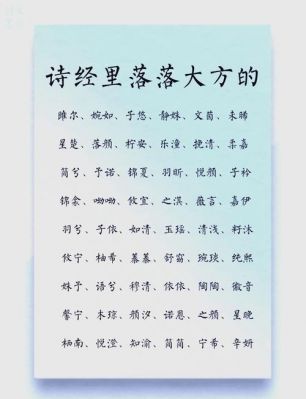 诗经里落落大方的
雎尔、婉如、子悠、静姝、文茵、未晞
星楚、落颜、柠安、乐潼、挽清、柔嘉
简兮、予诺、锦夏、羽昕、悦颜、子衿
锦余、呦呦、攸宜、之淇、薇言、嘉伊
羽兮、子依、如清、玉瑶、清浅、籽沐
攸宁、柚希、蓁蓁、舒窈、琬琰、纯熙
姝予、语兮、穆清、依依、陶陶、徽音
馨宁、木琼、颜汐、诺恩、之颜、星晚
栖南、悦滢、知渝、简简、宁希、辛妍